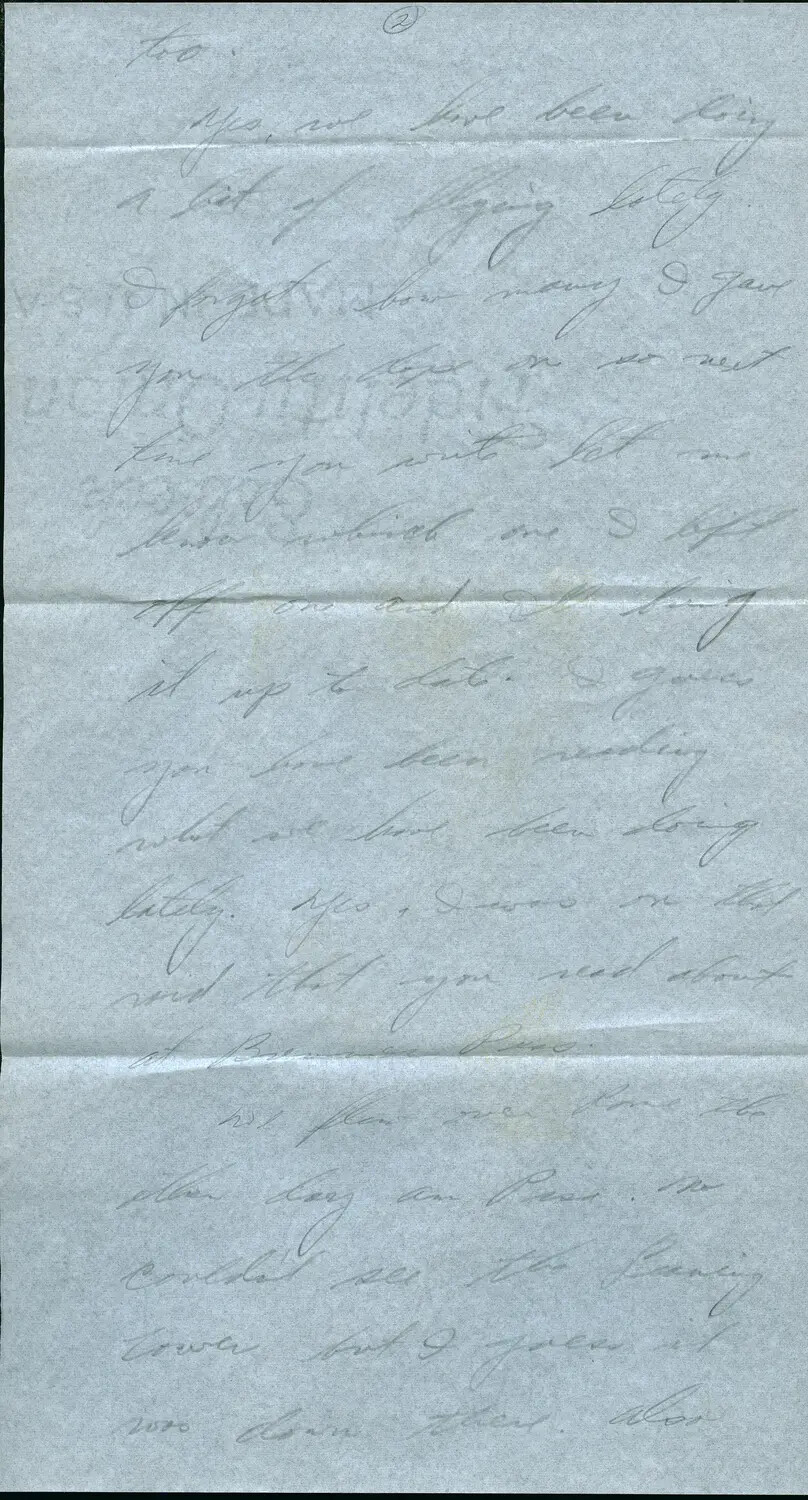 ②
too.
Yes, we have been doing
a bit of flying lately.
I forgot how many I gave
you the dope on so next
time you write let me
know which one I left
off on and I'll bring
it up to date. I guess
you have been reading
what we have been doing
lately. Yes, I was on that
raid that you read about
at Brenner Pass.
We flew over Rome the
other day and Pisa. We
couldn't see the Leaning
tower but I guess it
was down there. Also